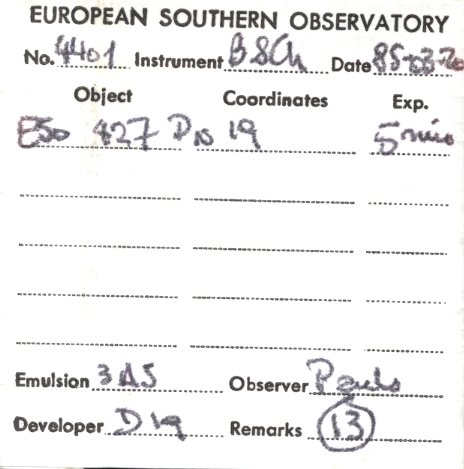 EUROPEAN SOUTHERN OBSERVATORY
No. 4401 Instrument BSCh Date 85-03-20
Object Coordinates Exp.
ESO 427 DN 19 5 min
Emulsion 3AJ Observer
Developer D19 Remarks 13